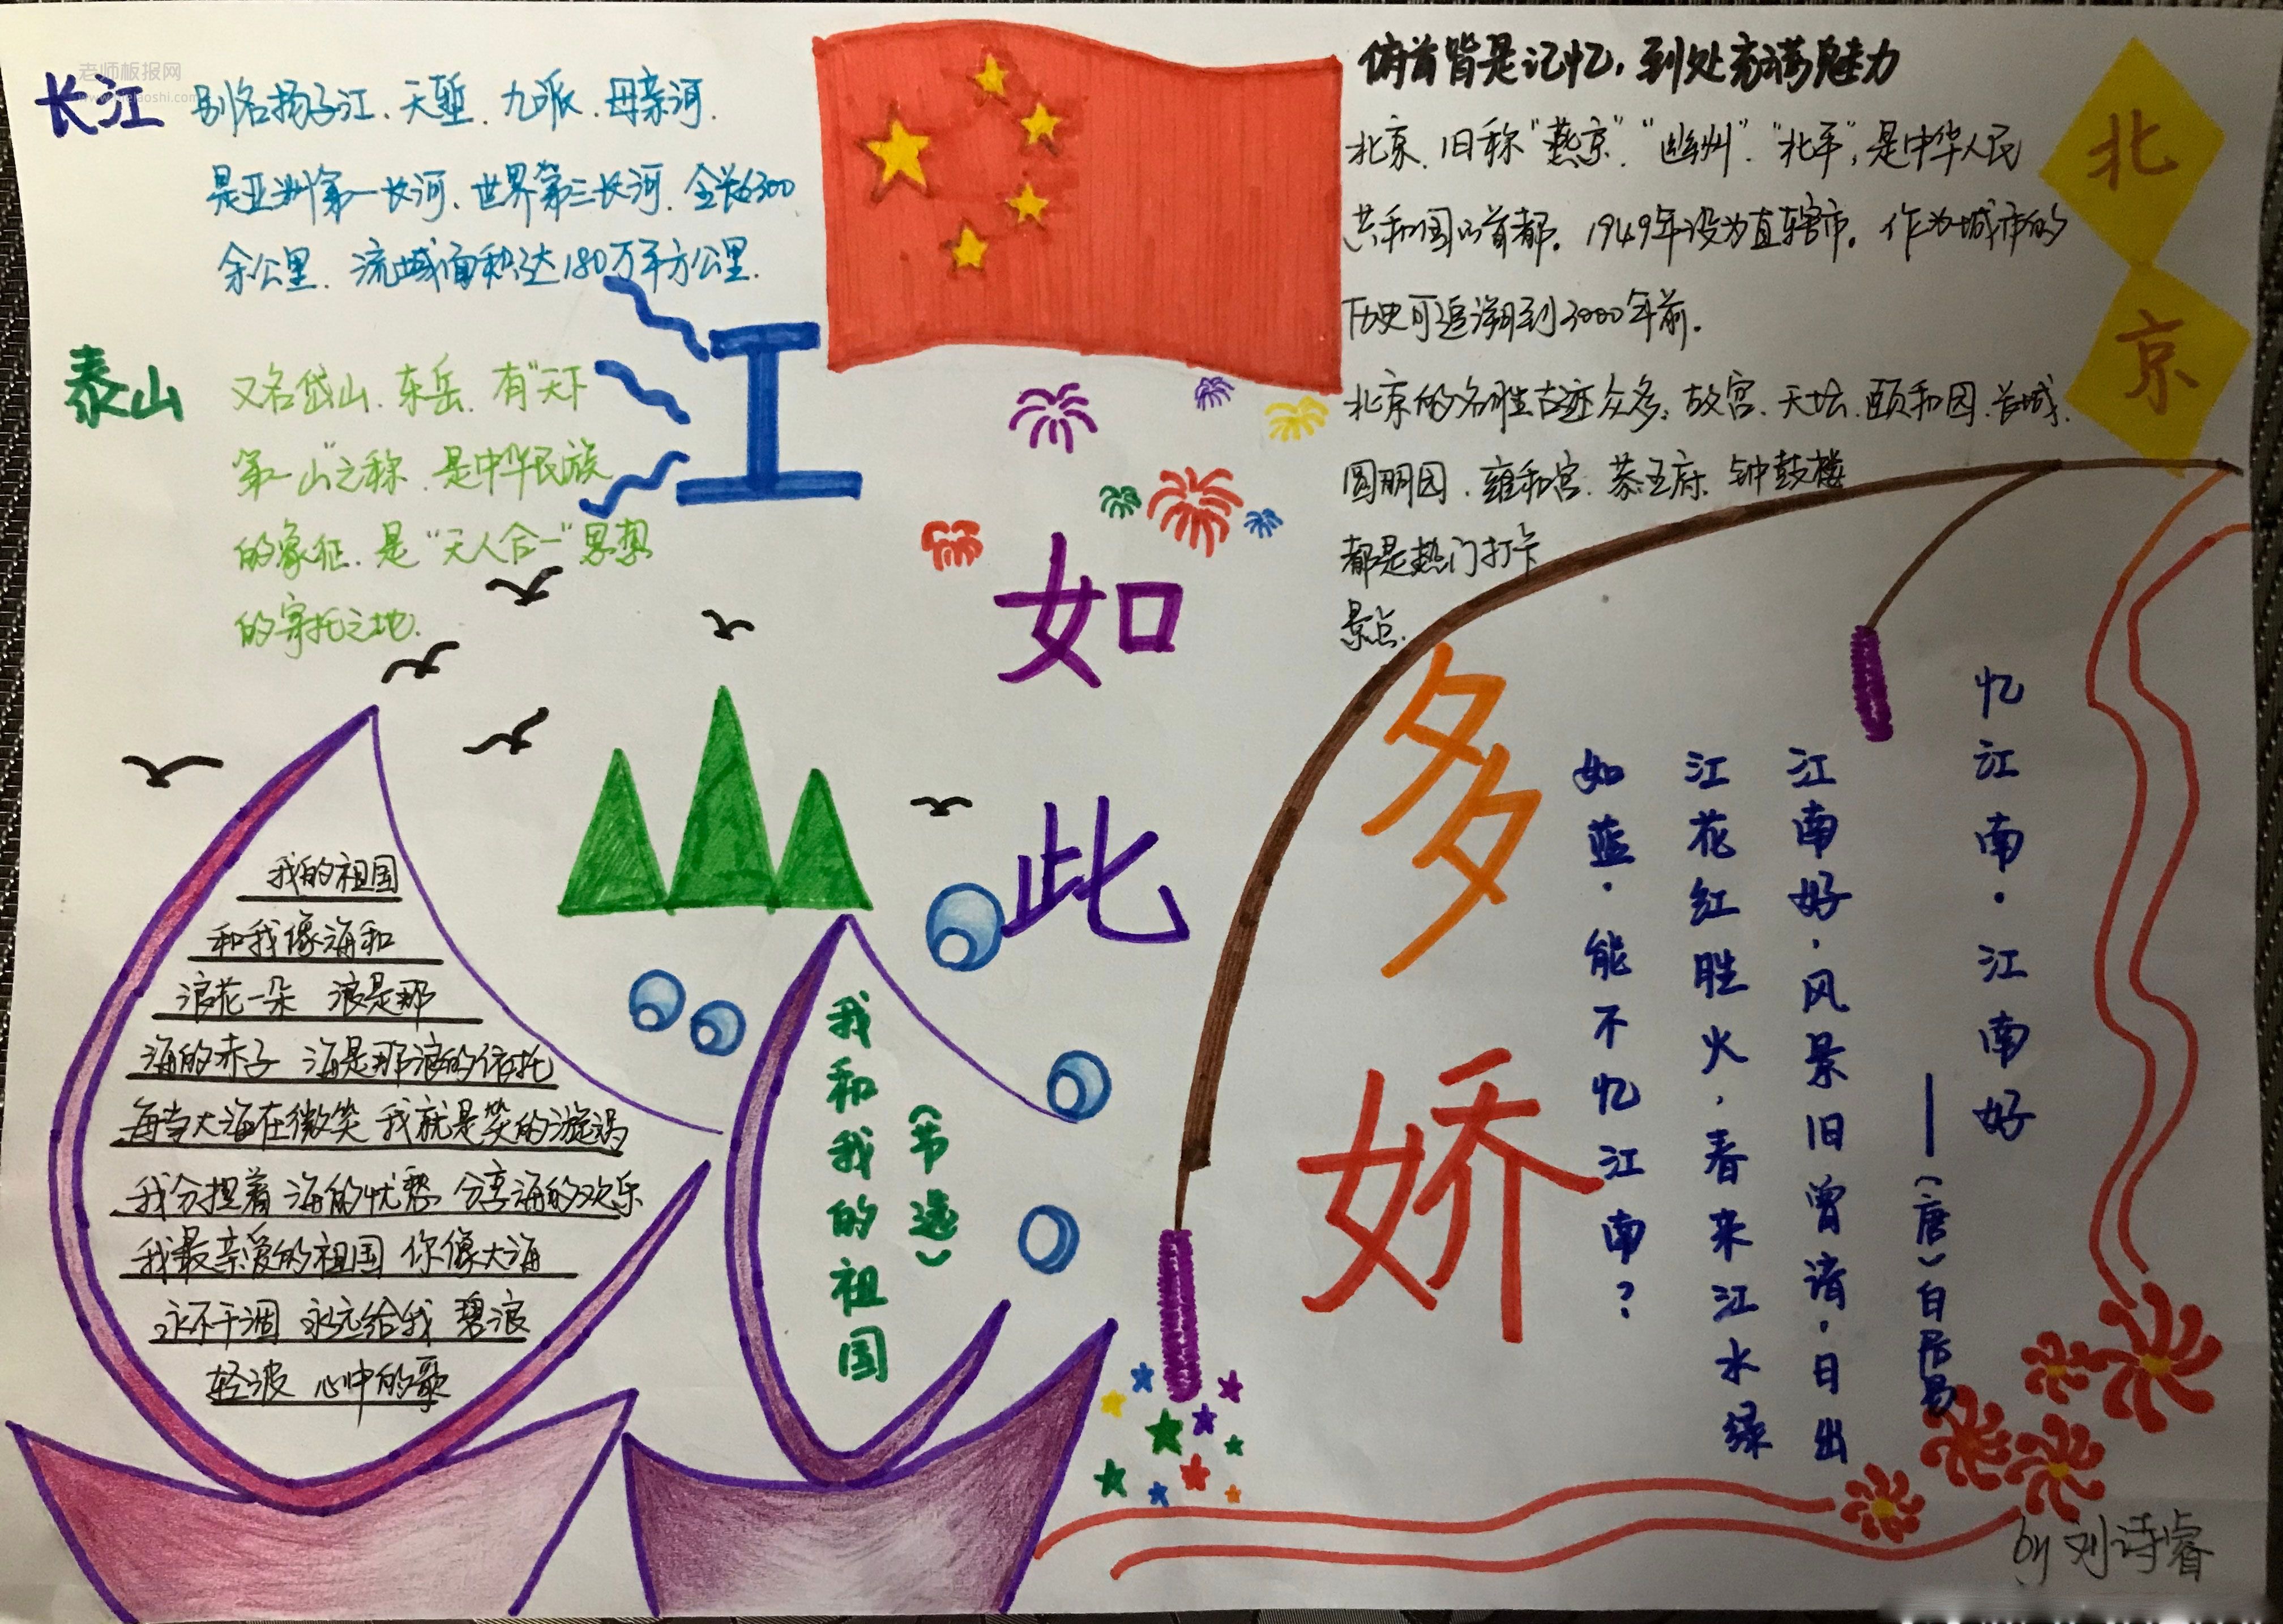 老师板报网
长江
别名扬子江、天堑、九派、母亲河.
是亚洲第一长河、世界第三长河、全长6300
余公里、流域面积达180万平方公里.
泰山
又名岱山、东岳、有“天下
第一山”之称、是中华民族
的象征、是“天人合一”思想
的寄托之地.
江
如
此
多
娇
俯首皆是记忆,到处充满魅力
北京、旧称“燕京”、“幽州”、“北平”,是中华人民
共和国的首都。1949年设为直辖市。作为城市的
历史可追溯到3000年前.
北京的名胜古迹众多:故宫、天坛、颐和园、长城、
圆明园、雍和宫、恭王府、钟鼓楼
都是热门打卡
景点.
北
京
忆江南·江南好
——(唐)白居易
江南好·风景旧曾谙·日出
江花红胜火·春来江水绿
如蓝·能不忆江南?
我和我的祖国
(节选)
我的祖国
和我像海和
浪花一朵 浪是那
海的赤子 海是那浪的依托
每当大海在微笑 我就是笑的漩涡
我分担着 海的忧愁 分享海的欢乐
我最亲爱的祖国 你像大海
永不干涸 永远给我 碧浪
轻波 心中的歌
by 刘诗睿